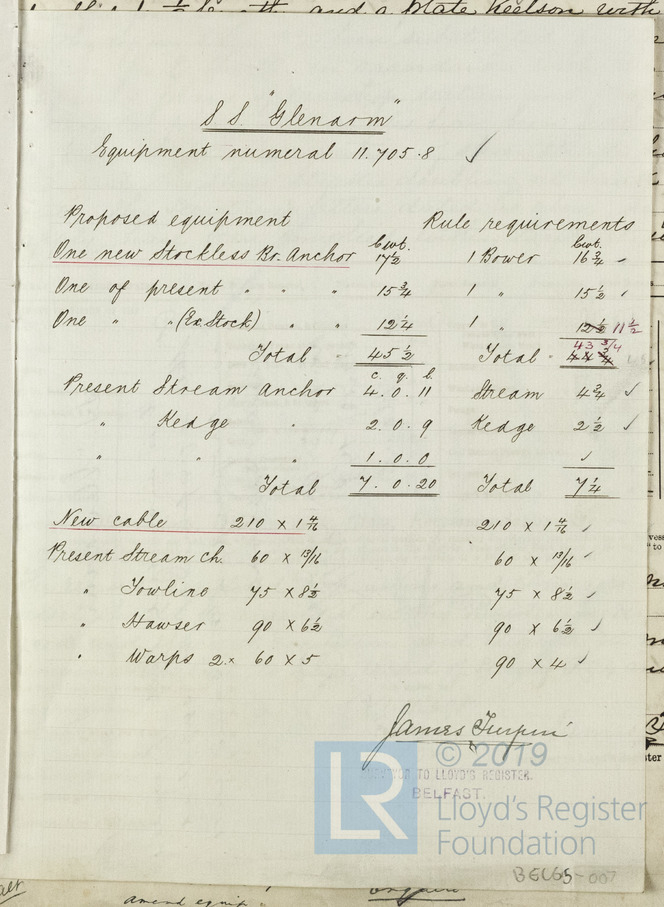 and a Plate Keelson with
S S. "Glenarm"
Equipment numeral 11.705.8 ✓
Proposed equipment Rule requirements
Cwt. Cwt.
One new Stockless Br. Anchor 17½ 1 Bower 16¾ ✓
One of present " " " 15¾ 1 " 15½ ✓
One " " (Ex. Stock) " " 12¼ 1 " 12½ 11½
43 3/4
Total 45½ Total 44¾
c. q. l.
Present Stream Anchor 4. 0. 11 Stream 4¾ ✓
" Kedge " 2. 0. 9 Kedge 2½ ✓
" " " 1. 0. 0 ✓
Total 7. 0. 20 Total 7¼
New cable 210 x 1 4/16 210 x 1 4/16 ✓
Present Stream Ch. 60 x 13/16 60 x 13/16 ✓
" Towline 75 x 8½ 75 x 8½ ✓
" Hawser 90 x 6½ 90 x 6½ ✓
" Warps 2 x 60 x 5 90 x 4 ✓
James Turpin
SURVEYOR TO LLOYD'S REGISTER.
BELFAST.
LR © 2019
Lloyd's Register
Foundation
BEL65-007